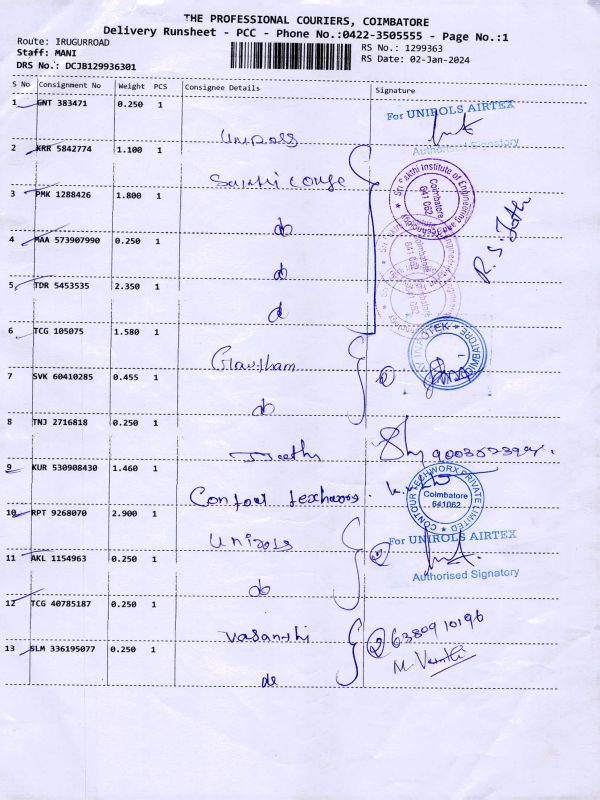 THE PROFESSIONAL COURIERS, COIMBATORE
Delivery Runsheet - PCC - Phone No.:0422-3505555 - Page No.:1
Route: IRUGURROAD
RS No.: 1299363
Staff: MANI
RS Date: 02-Jan-2024
DRS No.: DCJB129936301
S No Consignment No Weight PCS Consignee Details Signature
1 GNT 383471 0.250 1
For UNIROLS AIRTEX
Authorised Signatory
2 KRR 5842774 1.100 1
Sri Sakthi Institute of Engineering and Technology
Coimbatore
641 062
3 PMK 1288426 1.800 1
do
4 MAA 573907990 0.250 1
do
5 TDR 5453535 2.350 1
6 TCG 105075 1.580 1
Gowtham
7 SVK 60410285 0.455 1
do
8 TNJ 2716818 0.250 1
9 KUR 530908430 1.460 1
CONTOUR TECHWORX PRIVATE LIMITED
Coimbatore
641062
10 RPT 9268070 2.900 1
Unirols
For UNIROLS AIRTEX
Authorised Signatory
11 AKL 1154963 0.250 1
do
12 TCG 40785187 0.250 1
Vasanthi
6380910196
13 SLM 336195077 0.250 1